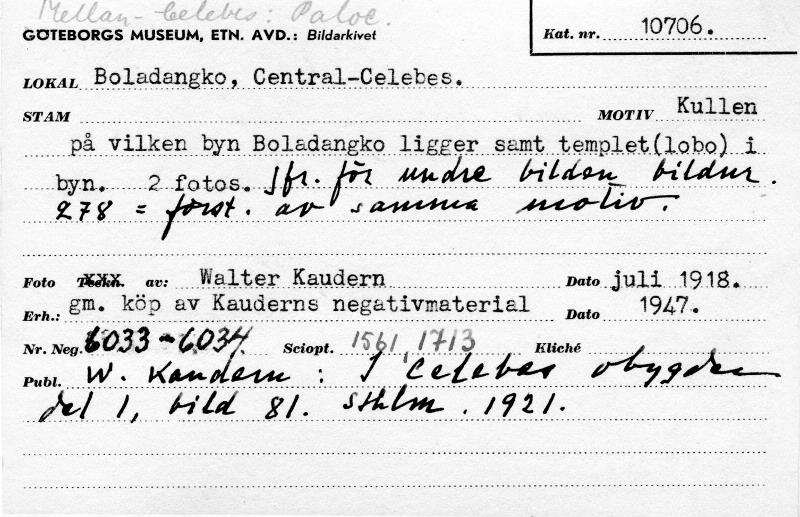 Mellan-Celebes: Paloe.
GÖTEBORGS MUSEUM, ETN. AVD.: Bildarkivet
Kat. nr. 10706.
LOKAL Boladangko, Central-Celebes.
STAM MOTIV Kullen
på vilken byn Boladangko ligger samt templet(lobo) i
byn. 2 fotos. Jfr. för undre bilden bildnr.
278 = först. av samma motiv.
Foto Teckn. av: Walter Kaudern Dato juli 1918.
Erh.: gm. köp av Kauderns negativmaterial Dato 1947.
Nr. Neg. 6033-6034. Sciopt. 1561, 1713 Kliché
Publ. W. Kaudern: I Celebes obygder
del 1, bild 81. Sthlm. 1921.